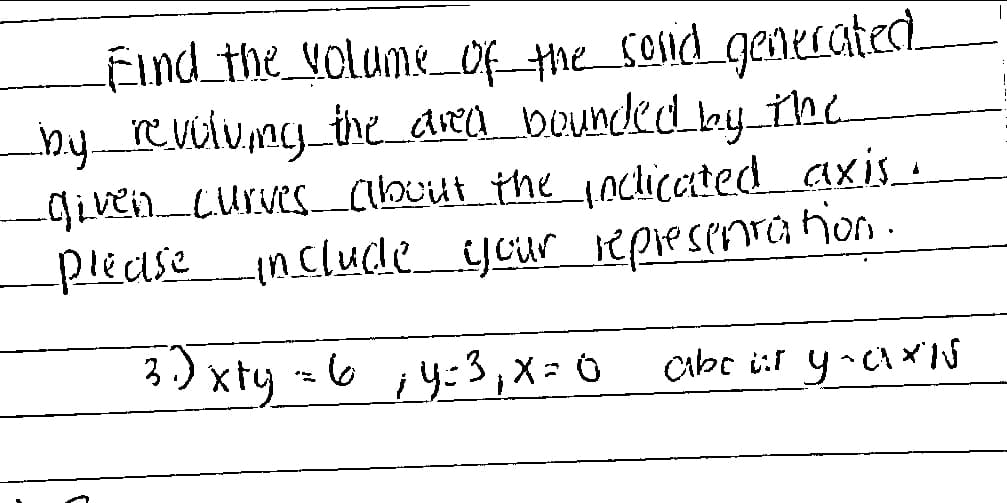 Find the volume of the solid generated
by revolving the area bounded by the
given curves about the indicated axis.
please include your representation.
3.) x+y = 6 ; y=3, x=0 about y-axis